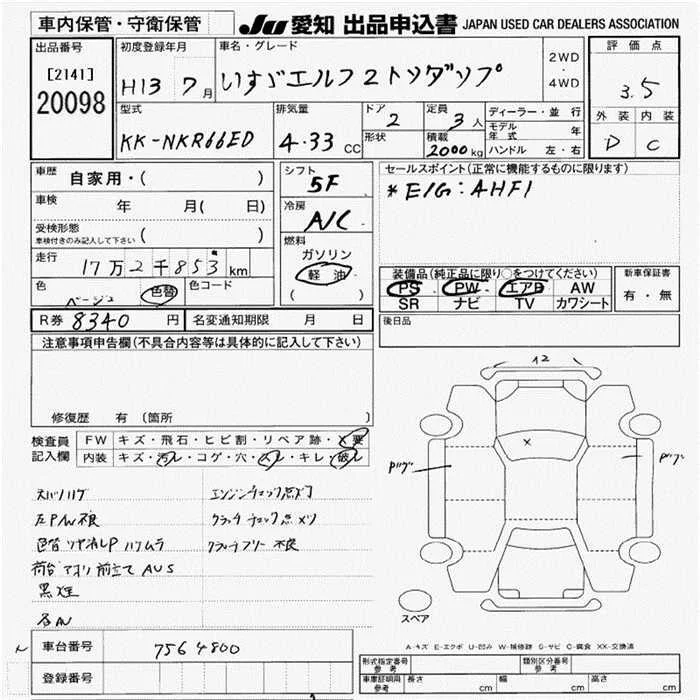 車内保管・守衛保管
JU 愛知 出品申込書 JAPAN USED CAR DEALERS ASSOCIATION
出品番号
[2141]
20098
初度登録年月
H13 7月
車名・グレード
いすゞエルフ2トンダンプ
2WD
・
4WD
評価点
3.5
外装 内装
D C
型式
KK-NKR66ED
排気量
4.33 CC
ドア
2
形状
定員
3人
積載
2000kg
ディーラー・並行
モデル年式 年
ハンドル 左・右
車歴
自家用・( )
車検 年 月( 日)
受検形態
車検付きのみ記入して下さい ( )
走行
17万2千853km
色
ベージュ
色替
色コード
シフト
5F
冷房
A/C
燃料
ガソリン
軽油
( )
セールスポイント(正常に機能するものに限ります)
* E/G:AHF1
装備品(純正品に限り○をつけてください)
PS PW エアB AW
SR ナビ TV カワシート
新車保証書
有・無
R券 8340円
名変通知期限 月 日
後日品
注意事項申告欄(不具合内容等は具体的に記入して下さい)
修復歴 有 (箇所 )
検査員
記入欄
FW キズ・飛石・ヒビ割・リペア跡・X要
内装 キズ・汚レ・コゲ・穴・スレ・キレ・破レ
エンジンチェック点灯
左PW不良
クラッチチェック点メツ
クラッチフリー不良
荷台アオリ前立てAUS
黒煙
A2
X
スペア
A-キズ E-エクボ U-凹み W-補修跡 S-サビ C-腐食 XX-交換済
車台番号
7564800
登録番号
形式指定番号
参考
類別区分番号
参考
車庫証明用
参考
長さ cm
幅 cm
高さ cm